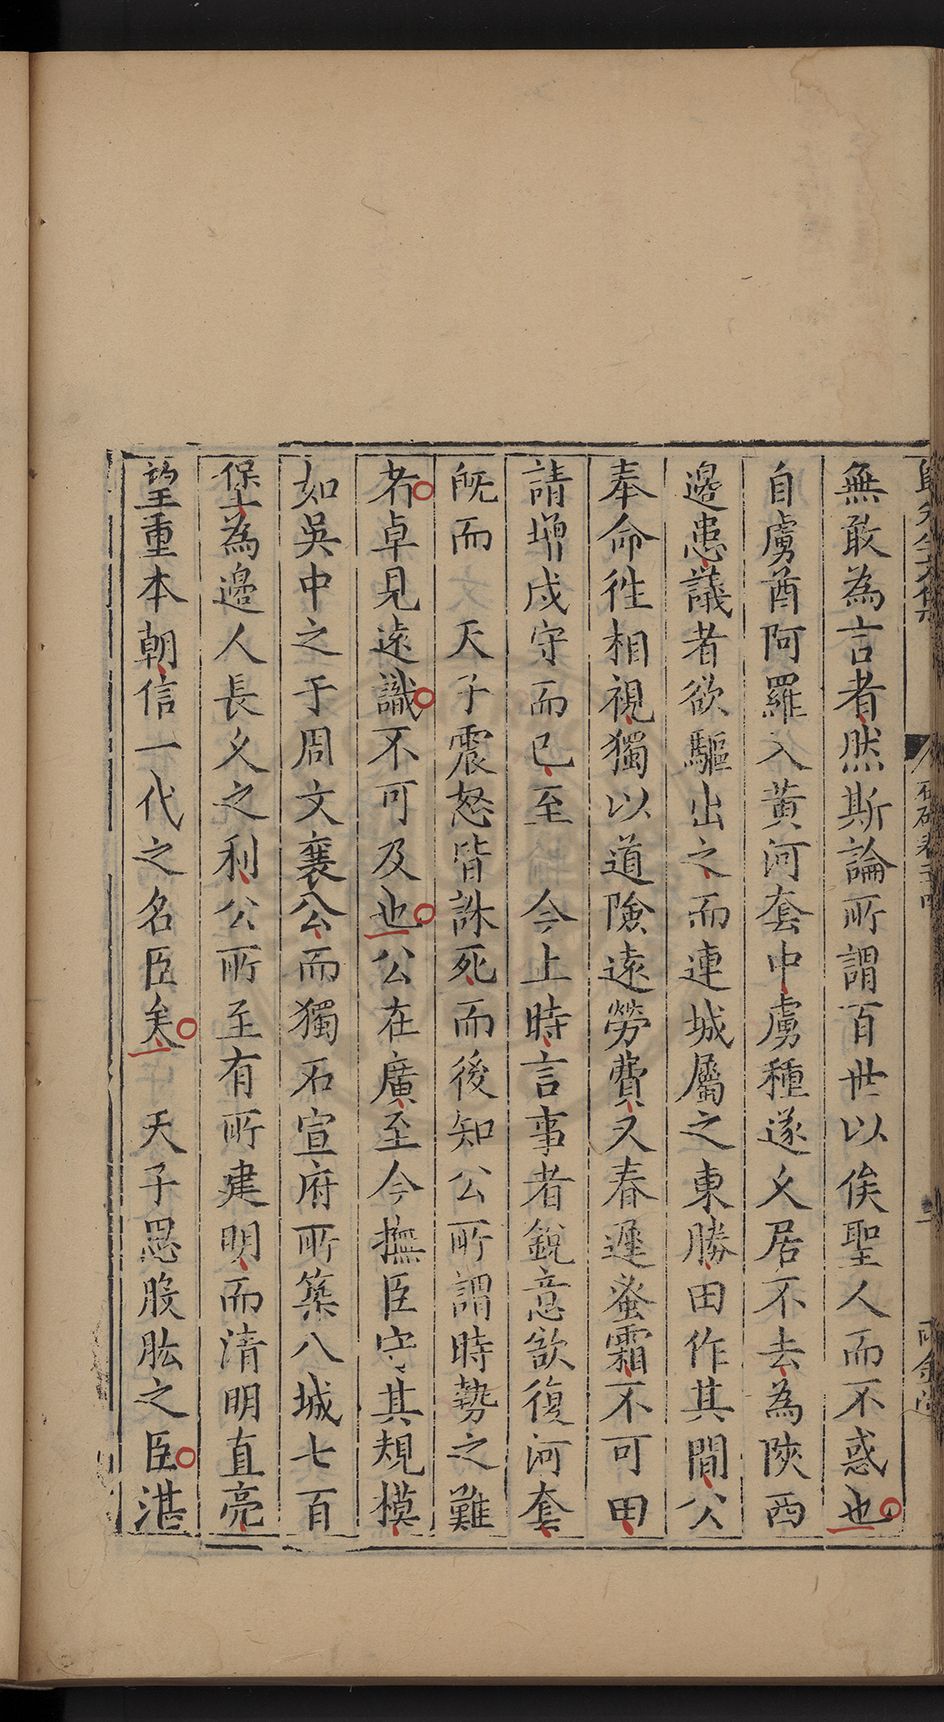 無敢為言者然斯論所謂百世以俟聖人而不惑也
自虜酋阿羅入黃河套中虜種遂久居不去為陝西
邊患議者欲驅出之而連城屬之東勝田作其間公
奉命徃相視獨以道險遠勞費又春遲蚤霜不可田
請增戍守而已至 今上時言事者銳意欲復河套
旣而 天子震怒皆誅死而後知公所謂時勢之難
者卓見遠識不可及也公在廣至今撫臣守其規模
如吳中之于周文襄公而獨石宣府所築八城七百
堡為邊人長久之利公所至有所建明而清明直亮
望重本朝信一代之名臣矣 天子思股肱之臣湛